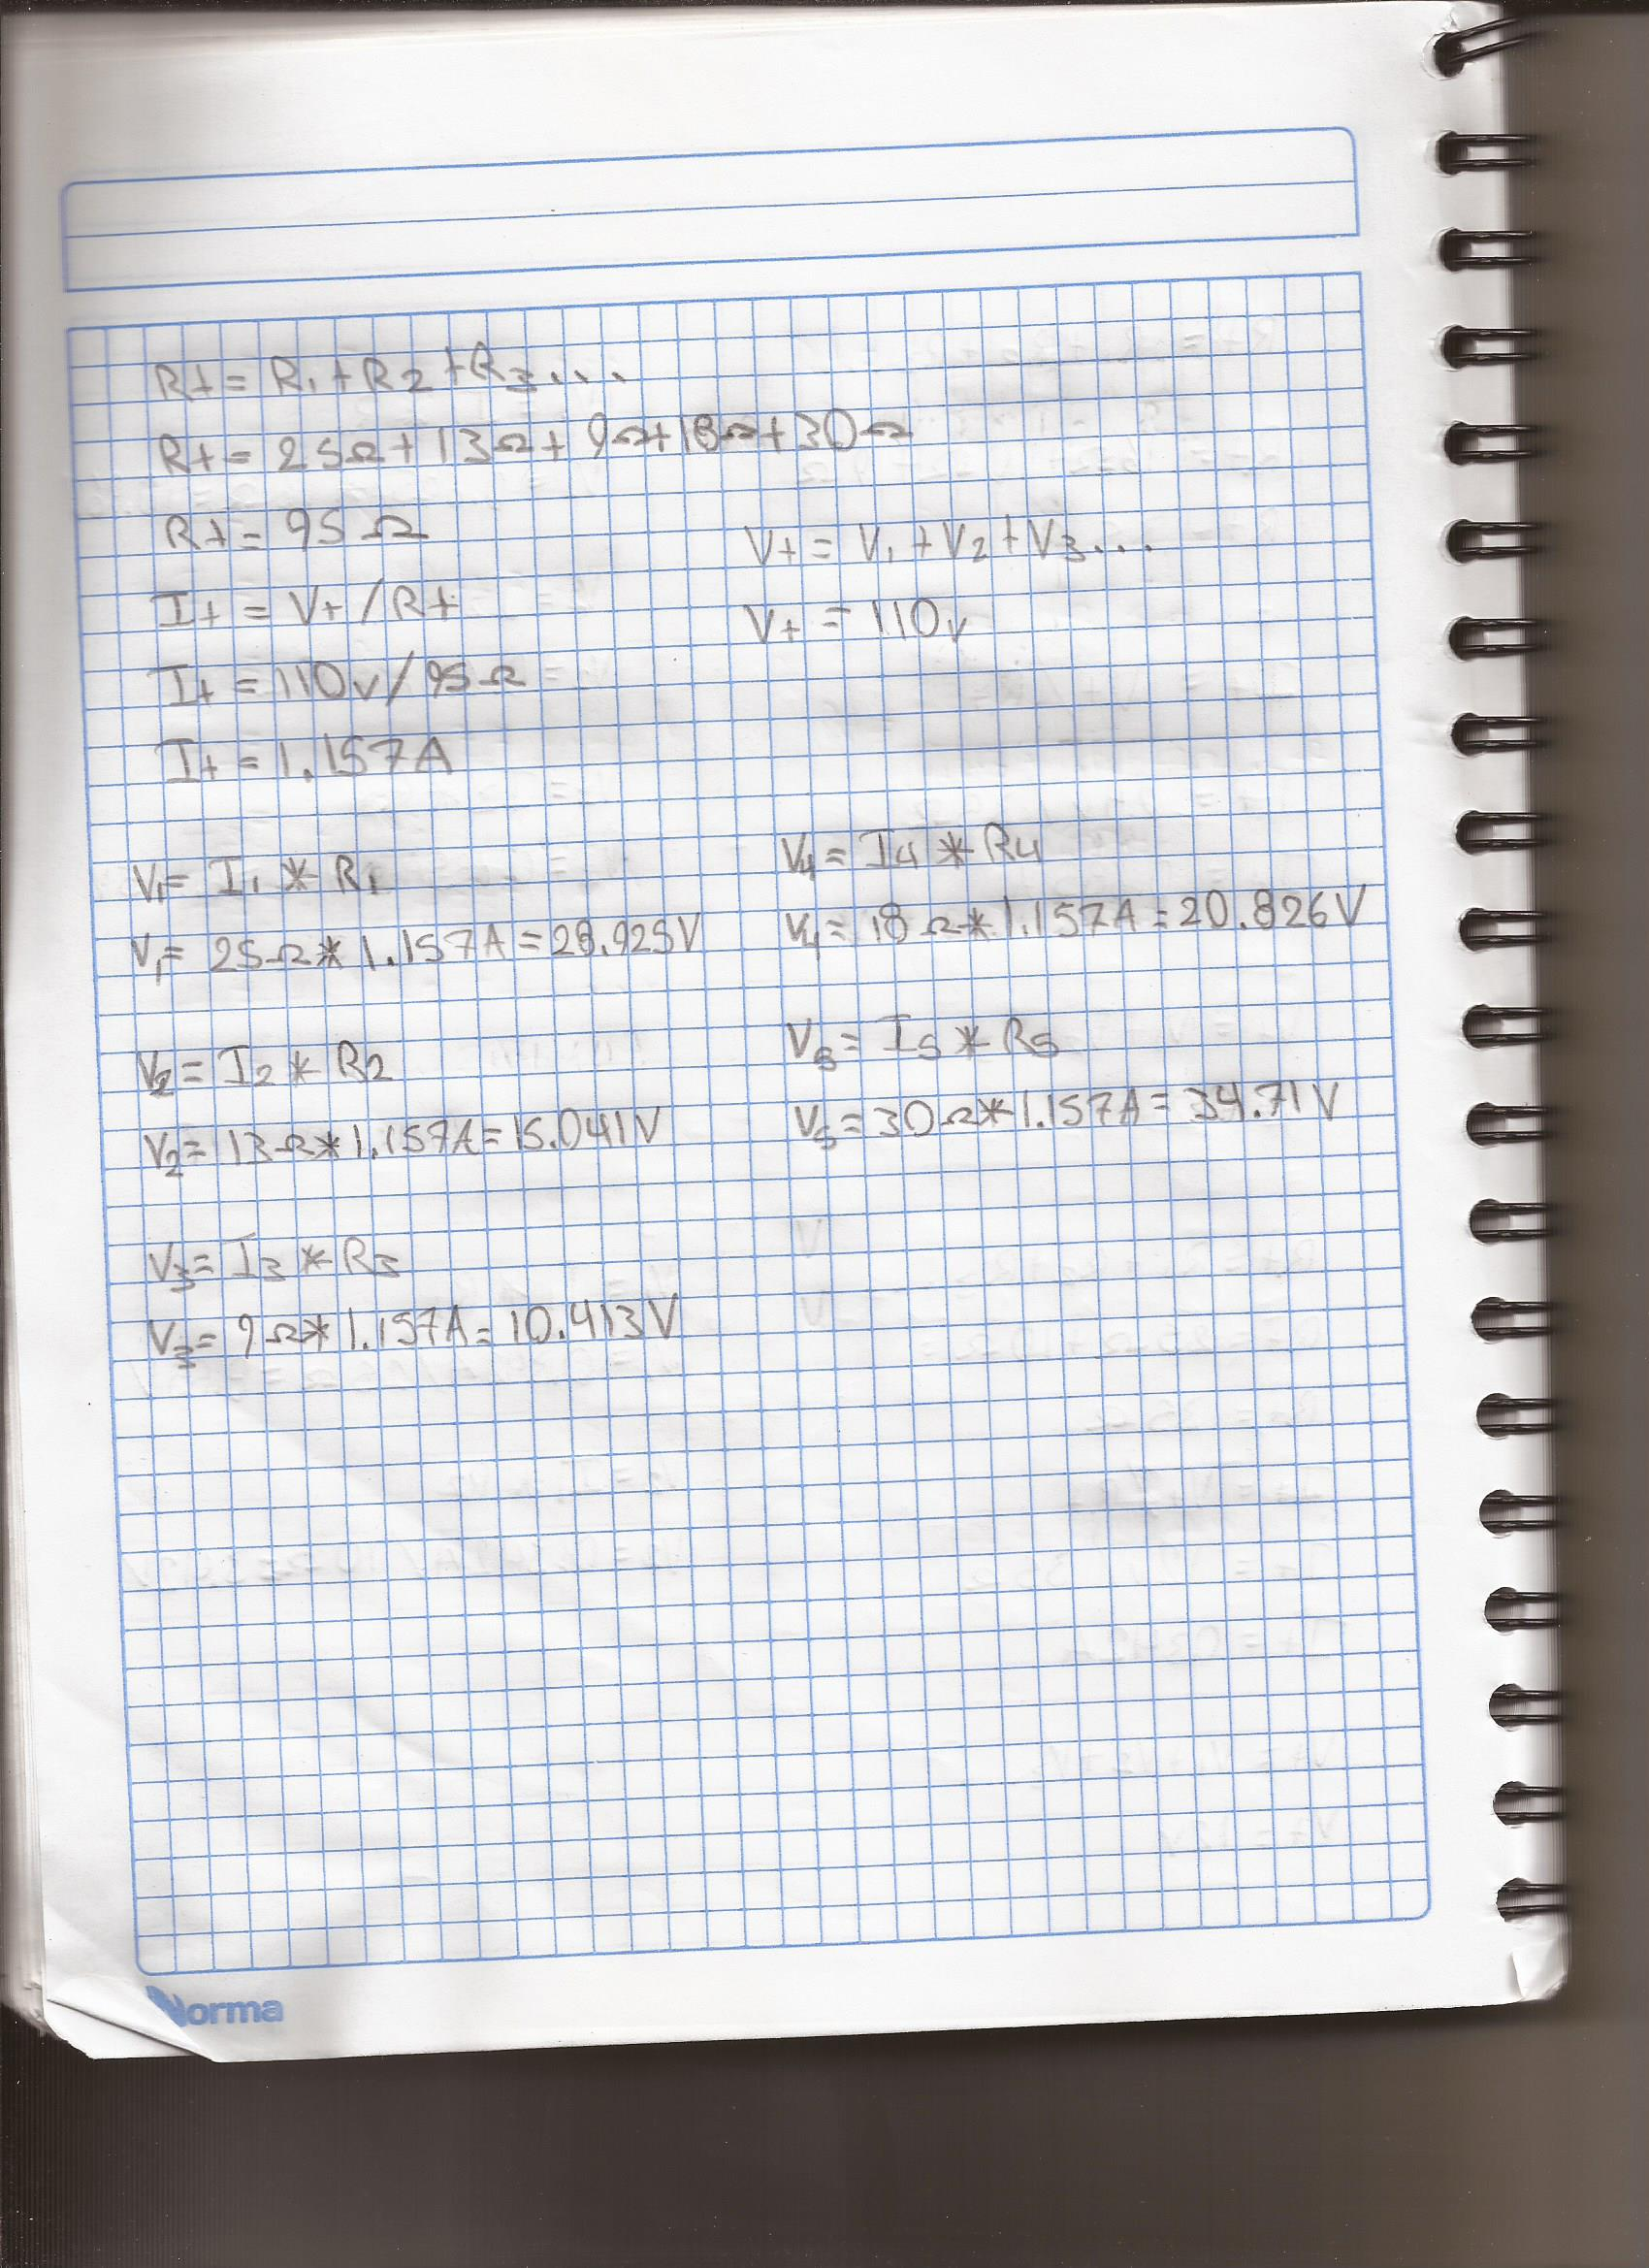 Rt = R1 + R2 + R3...
Rt = 25Ω + 13Ω + 9Ω + 18Ω + 30Ω
Rt = 95Ω
It = Vt / Rt
It = 110v / 95Ω
It = 1.157A
Vt = V1 + V2 + V3...
Vt = 110v
V1 = I1 * R1
V1 = 25Ω * 1.157A = 28.925V
V2 = I2 * R2
V2 = 13Ω * 1.157A = 15.041V
V3 = I3 * R3
V3 = 9Ω * 1.157A = 10.413V
V4 = I4 * R4
V4 = 18Ω * 1.157A = 20.826V
V5 = I5 * R5
V5 = 30Ω * 1.157A = 34.71V
Norma